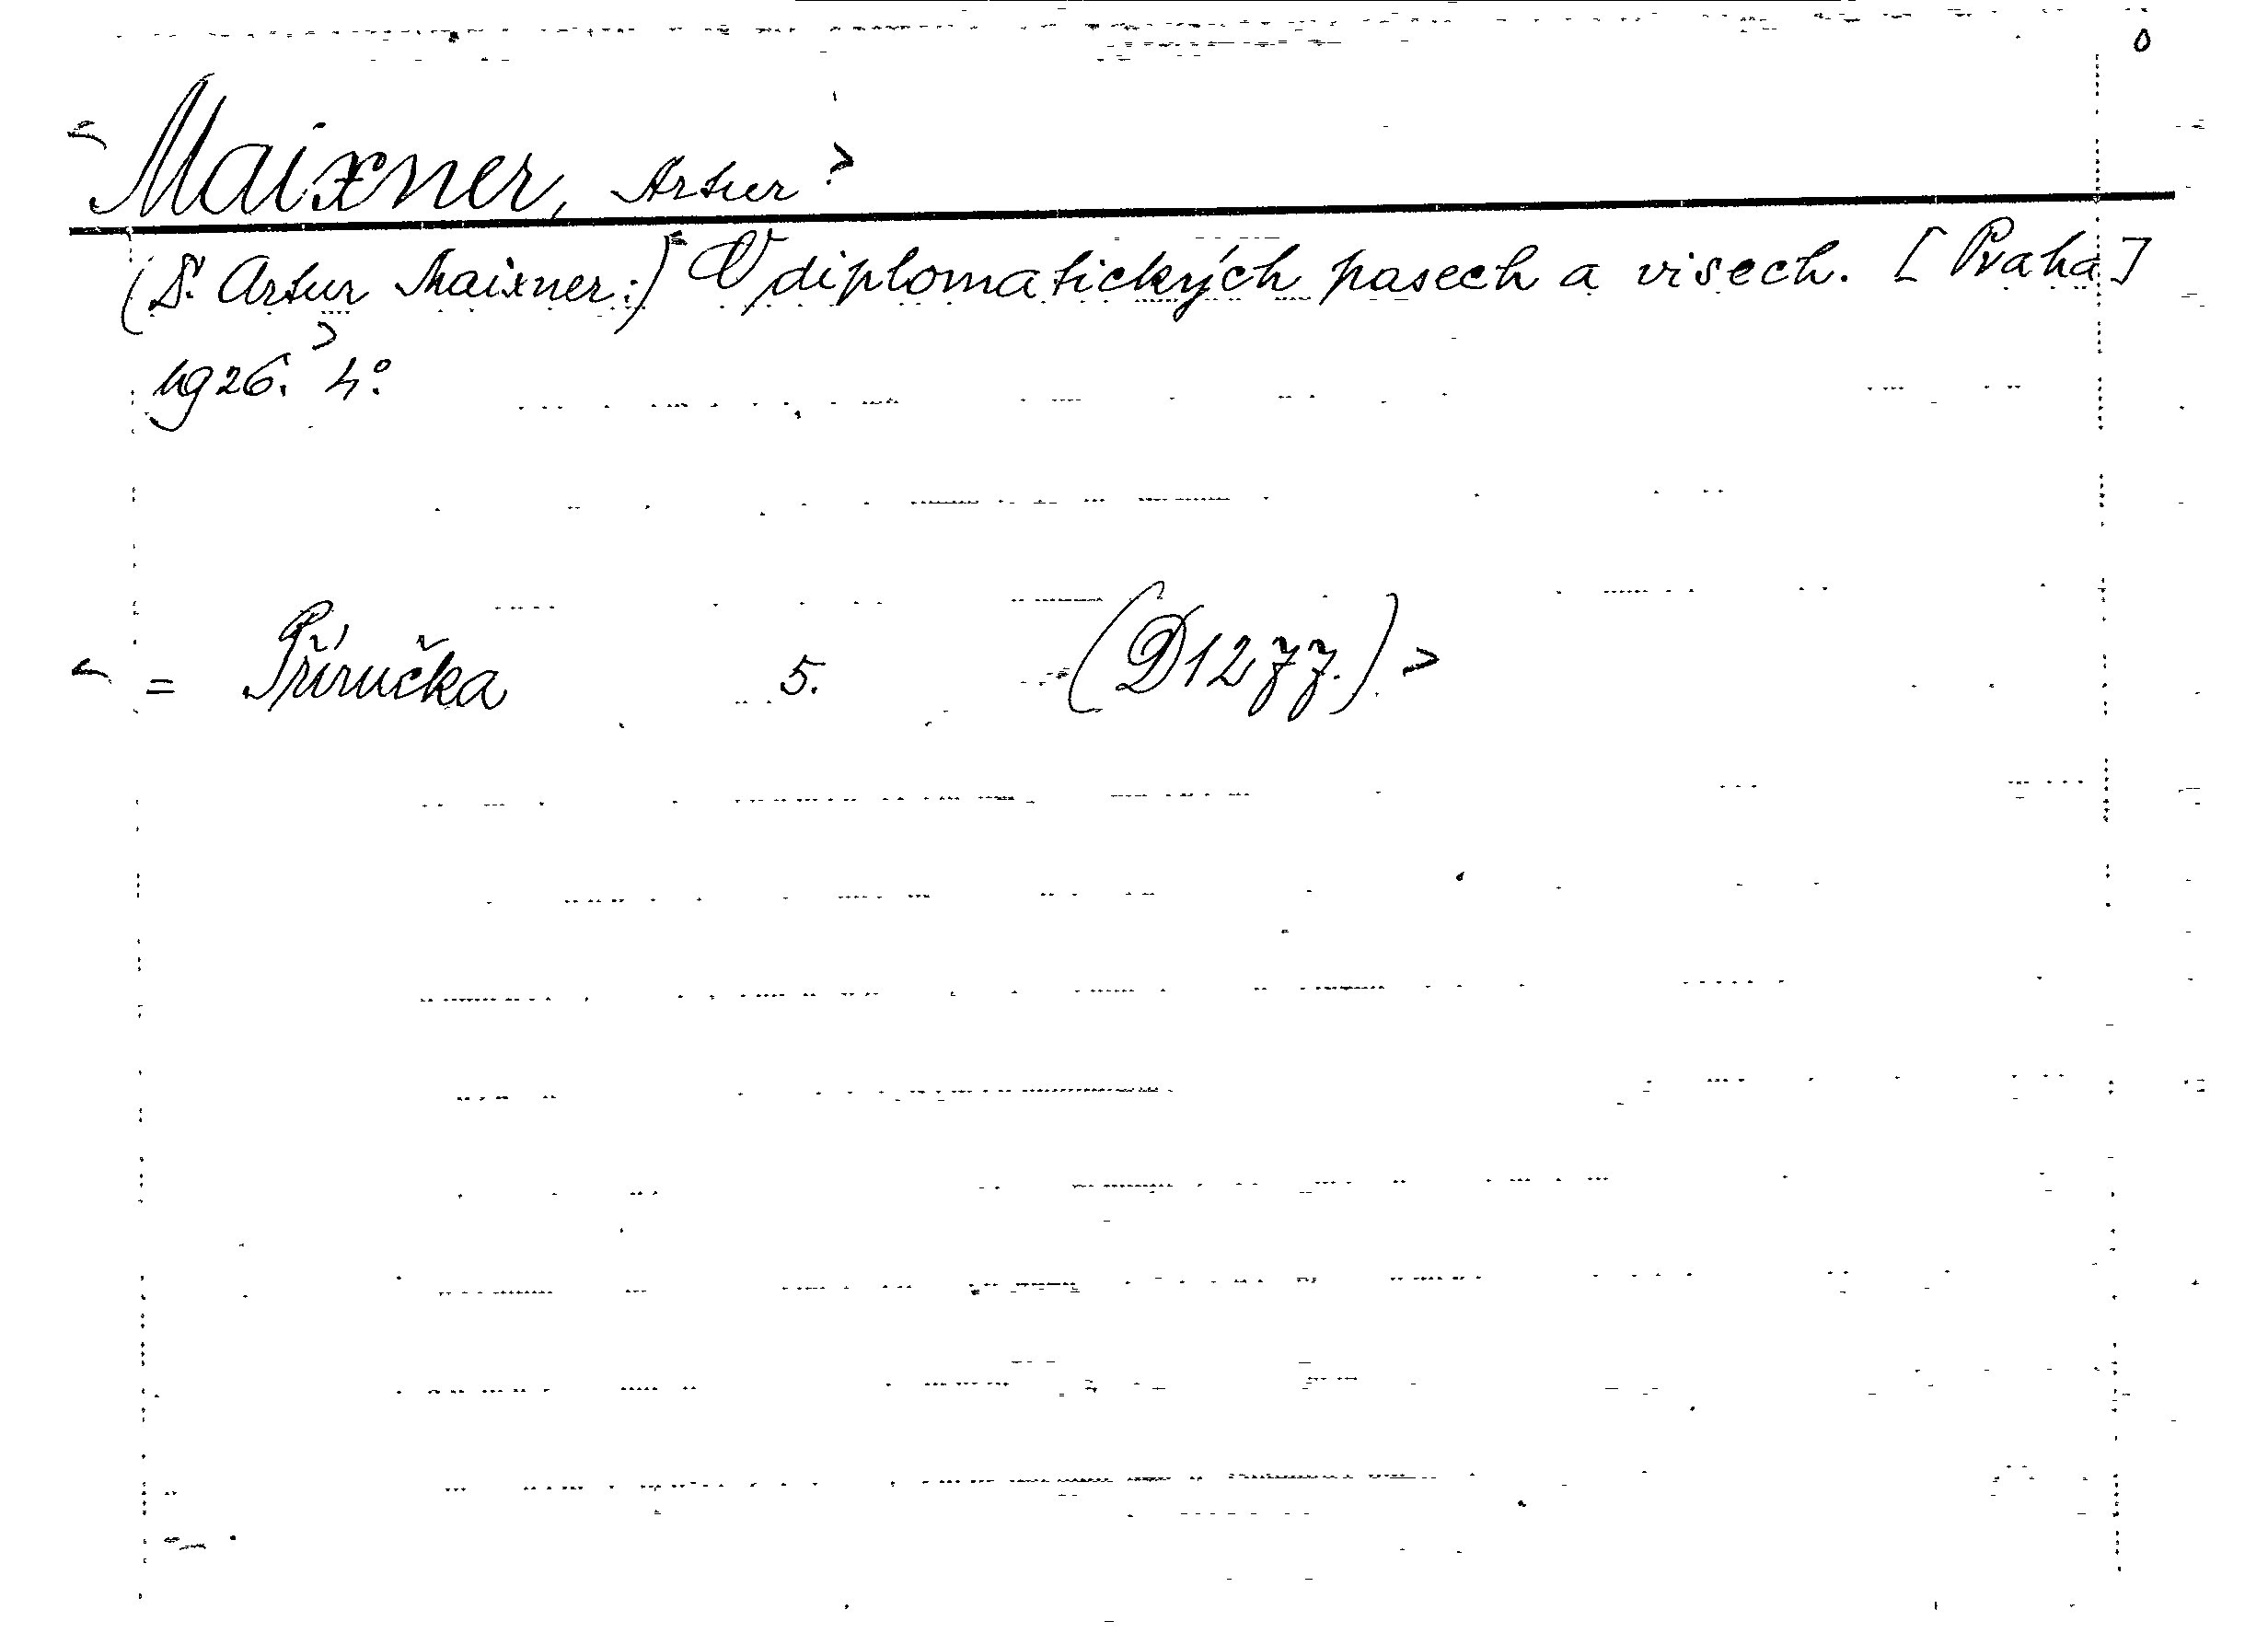 <Maixner, Artur>
(Dr. Artur Maixner:) <O diplomatických pasech a visech. [Praha]
1926.> 4°.
< = Příručka 5. (D1277.) >